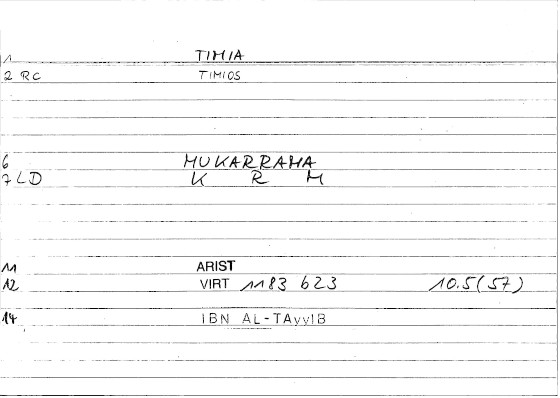 1 TIMIA
2 RC TIMIOS
6 MUKARRAMA
7 LD K R M
11 ARIST
12 VIRT 1183 623 10.5(57)
14 IBN AL-TAyyIB